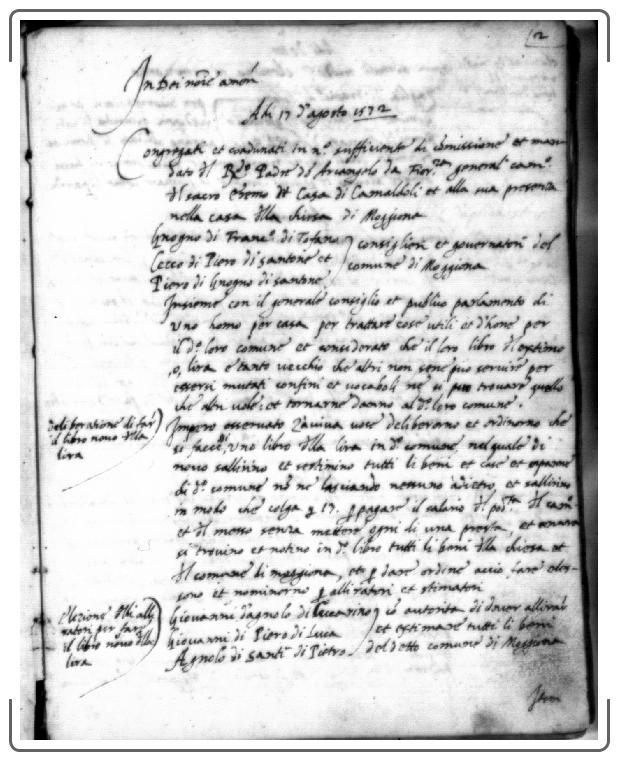 2
In Dei no͞e amen
Adi 17 d'agosto 1572
Congregati et coadunati in n.º sufficiente di comissione et man
dato del R.do Padre do͞ Arcangelo da Fior.za general cam.º
del sacro Eremo et Casa di Camaldoli et alla sua presenza
nella casa della chiesa di Moggiona
Gnogno di Franc.º di Tofano
Cecco di Piero di santone et
Piero di Gnogno di santone
consiglieri et governatori del
comune di Moggiona
Insieme con il generale consiglio et publico parlamento di
uno homo per casa per trattare cose utili et d'hone per
il d.º loro comune et considerato che il loro libro del estimo
o, lira e tanto vecchio che altri non sene puo servire per
essersi mutati confini et vocaboli ne si puo trovare quello
che altri vole: et tornarne danno al d.º loro comune.
deliberazione di far
il libro novo della
lira
Impero osservato a viva voce deliberorno et ordinorno che
si facci uno libro della lira in d.º comune, nel quale di
novo sallirino et sestimino tutti li beni et case et
di d.º comune no͞ ne lasciando nessuno indietro, et sallirino
in modo che colga 17. p pagare il salario del pod.ta del cam.º
et del messo senza mettere ogni di una presta, et
si trovino et notino in d.º libro tutti li beni della chiesa et
del comune di moggiona, etc p dare ordine accio fare eles
sono et nominorno p alliratori et stimatori
Elezione delli alli
ratori per fare
il libro novo della
lira
Giovanni d'agnolo di Ceccarino
Giovanni di Piero di Luca
Agnolo di Santi di Pietro
co͞ autorita di dover allirare
et estimare tutti li beni
del detto comune di Moggiona
Item